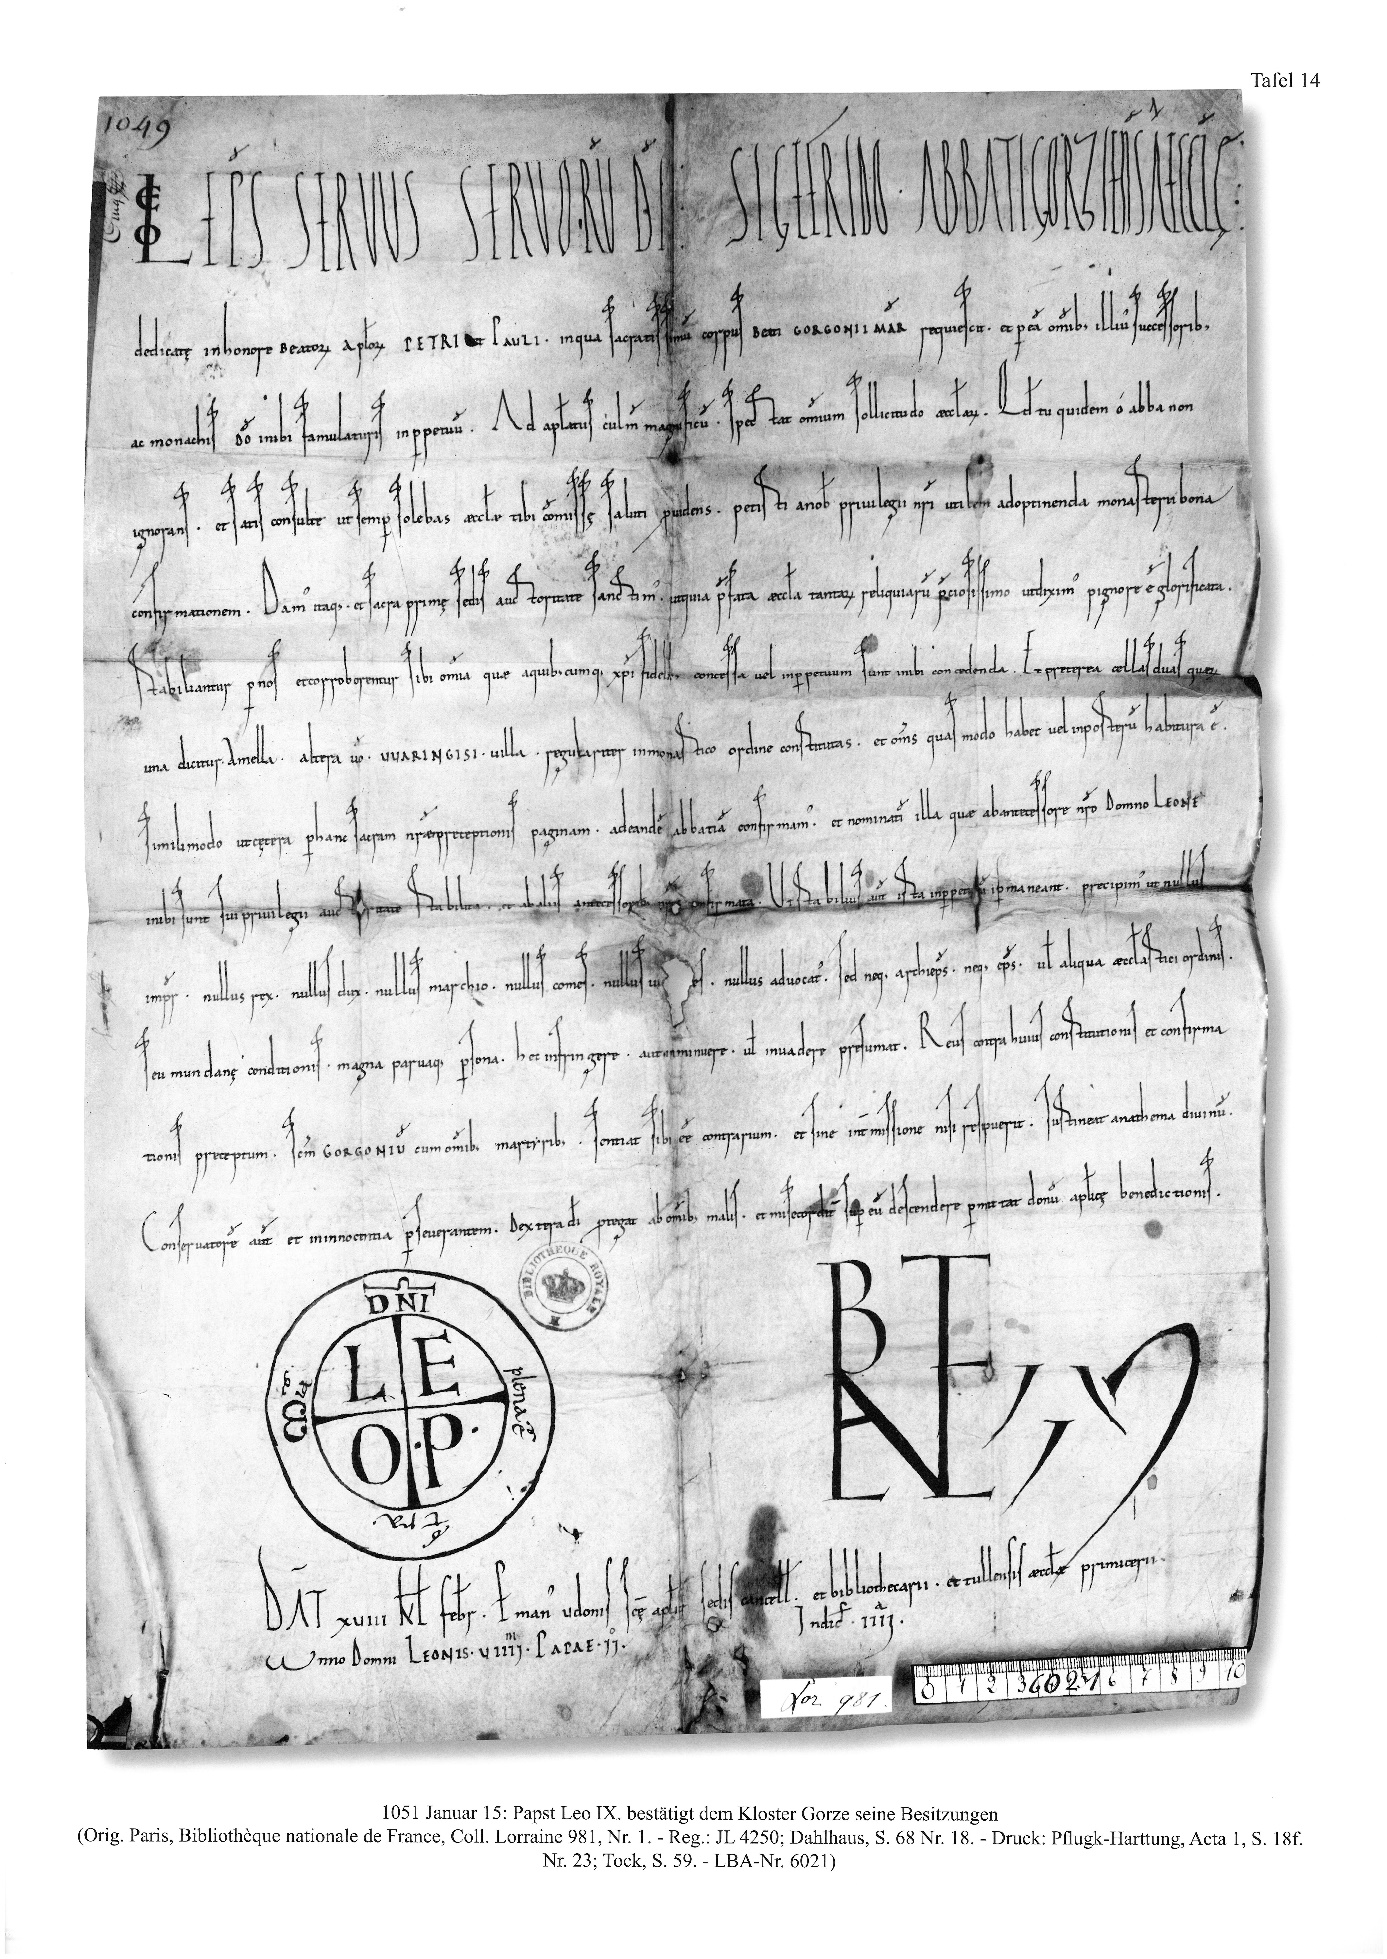 Tafel 14
1049
LEO EPS SERVUS SERVORU DI SIGEFRIDO ABBATI GORZIENSIS AECCLĘ
dedicatę inhonore Beatorꝝ Aplorꝝ PETRI et PAULI · inqua sacratissimū corpus Beati GORGONII MAR requiescit · et p eū omīb; illiu͛ successorib;
ac monachis Dō inibi famulaturis inppetuū · Ad aplatus culm̄ magnificū · spectat omīum sollicitudo æcclaꝝ · Qd tu quidem ó abba non
ignorans · et satis consulte ut semp solebas æcclæ tibi cōmissę saluti puidens · petisti anob privilegii nri utilem adoptinenda monasterii bona
confirmationem · Dam' itaq; · et sacra primę sedis auctoritate sanctim' · utquia pfata æccla tantaꝝ reliquiarū pciosissimo utdixim' pignore ē glorificata ·
Stabiliantur p nos etcorroborentur sibi omīa quæ aquib;cumq; xpi fidelib; concessa vel inppetuum sunt inibi concedenda · Et preterea cellas duas quaꝝ
una dicitur · Amella · altera uō · UUARINGISI · uilla · regulariter inmonastico ordine constitutas · et oms quas modo habet vel inposterū habitura ē ·
Similimodo utcętera p hanc sacram nræ preceptionis paginam · adeandē abbatiā confirmam' · et nominatī illa quæ abantecessore nro Domno LEONE
inibi sunt sui privilegii auctoritate stabilita · et abaliis antecessorib; nris confirmata · Ut stabilius aūt ista inppetuū ipmaneant · precipim' ut nullus
impr · nullus rex · nullus dux · nullus marchio · nullus comes · nullus es · nullus advocat' · sed neq; archieps · neq; eps · ul aliqua æcclastici ordinis ·
seu mundanę conditionis · magna parvaq; psona · hęc infringere · aut imminuere · ul invadere presumat · Reus contra huius constitutionis et confirma
tionis preceptum · Scm GORGONIŪ cum omīb; martyrib; · sentiat sibi eē contrarium · et sine intmissione nisi respuerit · sustineat anathema divinū ·
Conservatorē aūt et ininnocentia pseverantem · Dextera di ptegat ab omīb; malis · et misecordit sup eū descendere pmittat donū aplicę benedictionis ·
BIBLIOTHEQUE ROYALE
Mia DNI plena ē tra
LEO · P ·
BENE VALETE
DAT XVIII KL febr · P man' udonis scę aplicę sedis cancell · et bibliothecarii · et tullensis æcclæ primicerii ·
Anno Domni LEONIS · VIIII · PAPAE · II · Indic · IIII ·
Lor 981.
0 1 2 3 6021 6 7 8 9 10
1051 Januar 15: Papst Leo IX. bestätigt dem Kloster Gorze seine Besitzungen
(Orig. Paris, Bibliothèque nationale de France, Coll. Lorraine 981, Nr. 1. - Reg.: JL 4250; Dahlhaus, S. 68 Nr. 18. - Druck: Pflugk-Harttung, Acta 1, S. 18f.
Nr. 23; Tock, S. 59. - LBA-Nr. 6021)